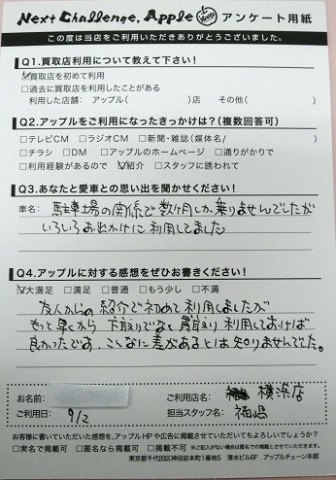 Next Challenge, Apple アンケート用紙
この度は当店をご利用いただきありがとうございました。
Q1.買取店利用について教えて下さい!
☑買取店を初めて利用
□過去に買取店を利用したことがある
利用した店舗: アップル( )店 その他( )
Q2.アップルをご利用になったきっかけは?(複数回答可)
□テレビCM □ラジオCM □新聞・雑誌(媒体名/ )
□チラシ □DM □アップルのホームページ □通りがかりで
□利用経験があるので ☑紹介 □スタッフに誘われて
Q3.あなたと愛車との思い出を聞かせください!
車名: 駐車場の関係で数ヶ月しか乗りませんでしたが
いろいろお出かけに利用してました
Q4.アップルに対する感想をぜひお書きください!
☑大満足 □満足 □普通 □もう少し □不満
友人からの紹介で初めて利用しましたが
もっと早くから下取りでなく買取り利用しておけば
良かったです。こんなに差があるとは知りませんでした。
お名前: ご利用店名: 横浜店
ご利用日: 9/2 担当スタッフ名: 福島
お客様に書いていただいた感想を、アップルHPや広告に掲載させていただいてもよろしいでしょうか?
□実名で掲載可 □匿名なら掲載可 □掲載不可 ※ご記入がない場合は匿名での掲載とさせていただきます。
東京都千代田区神田岩本町1番地5 清水ビル6F アップルチェーン本部